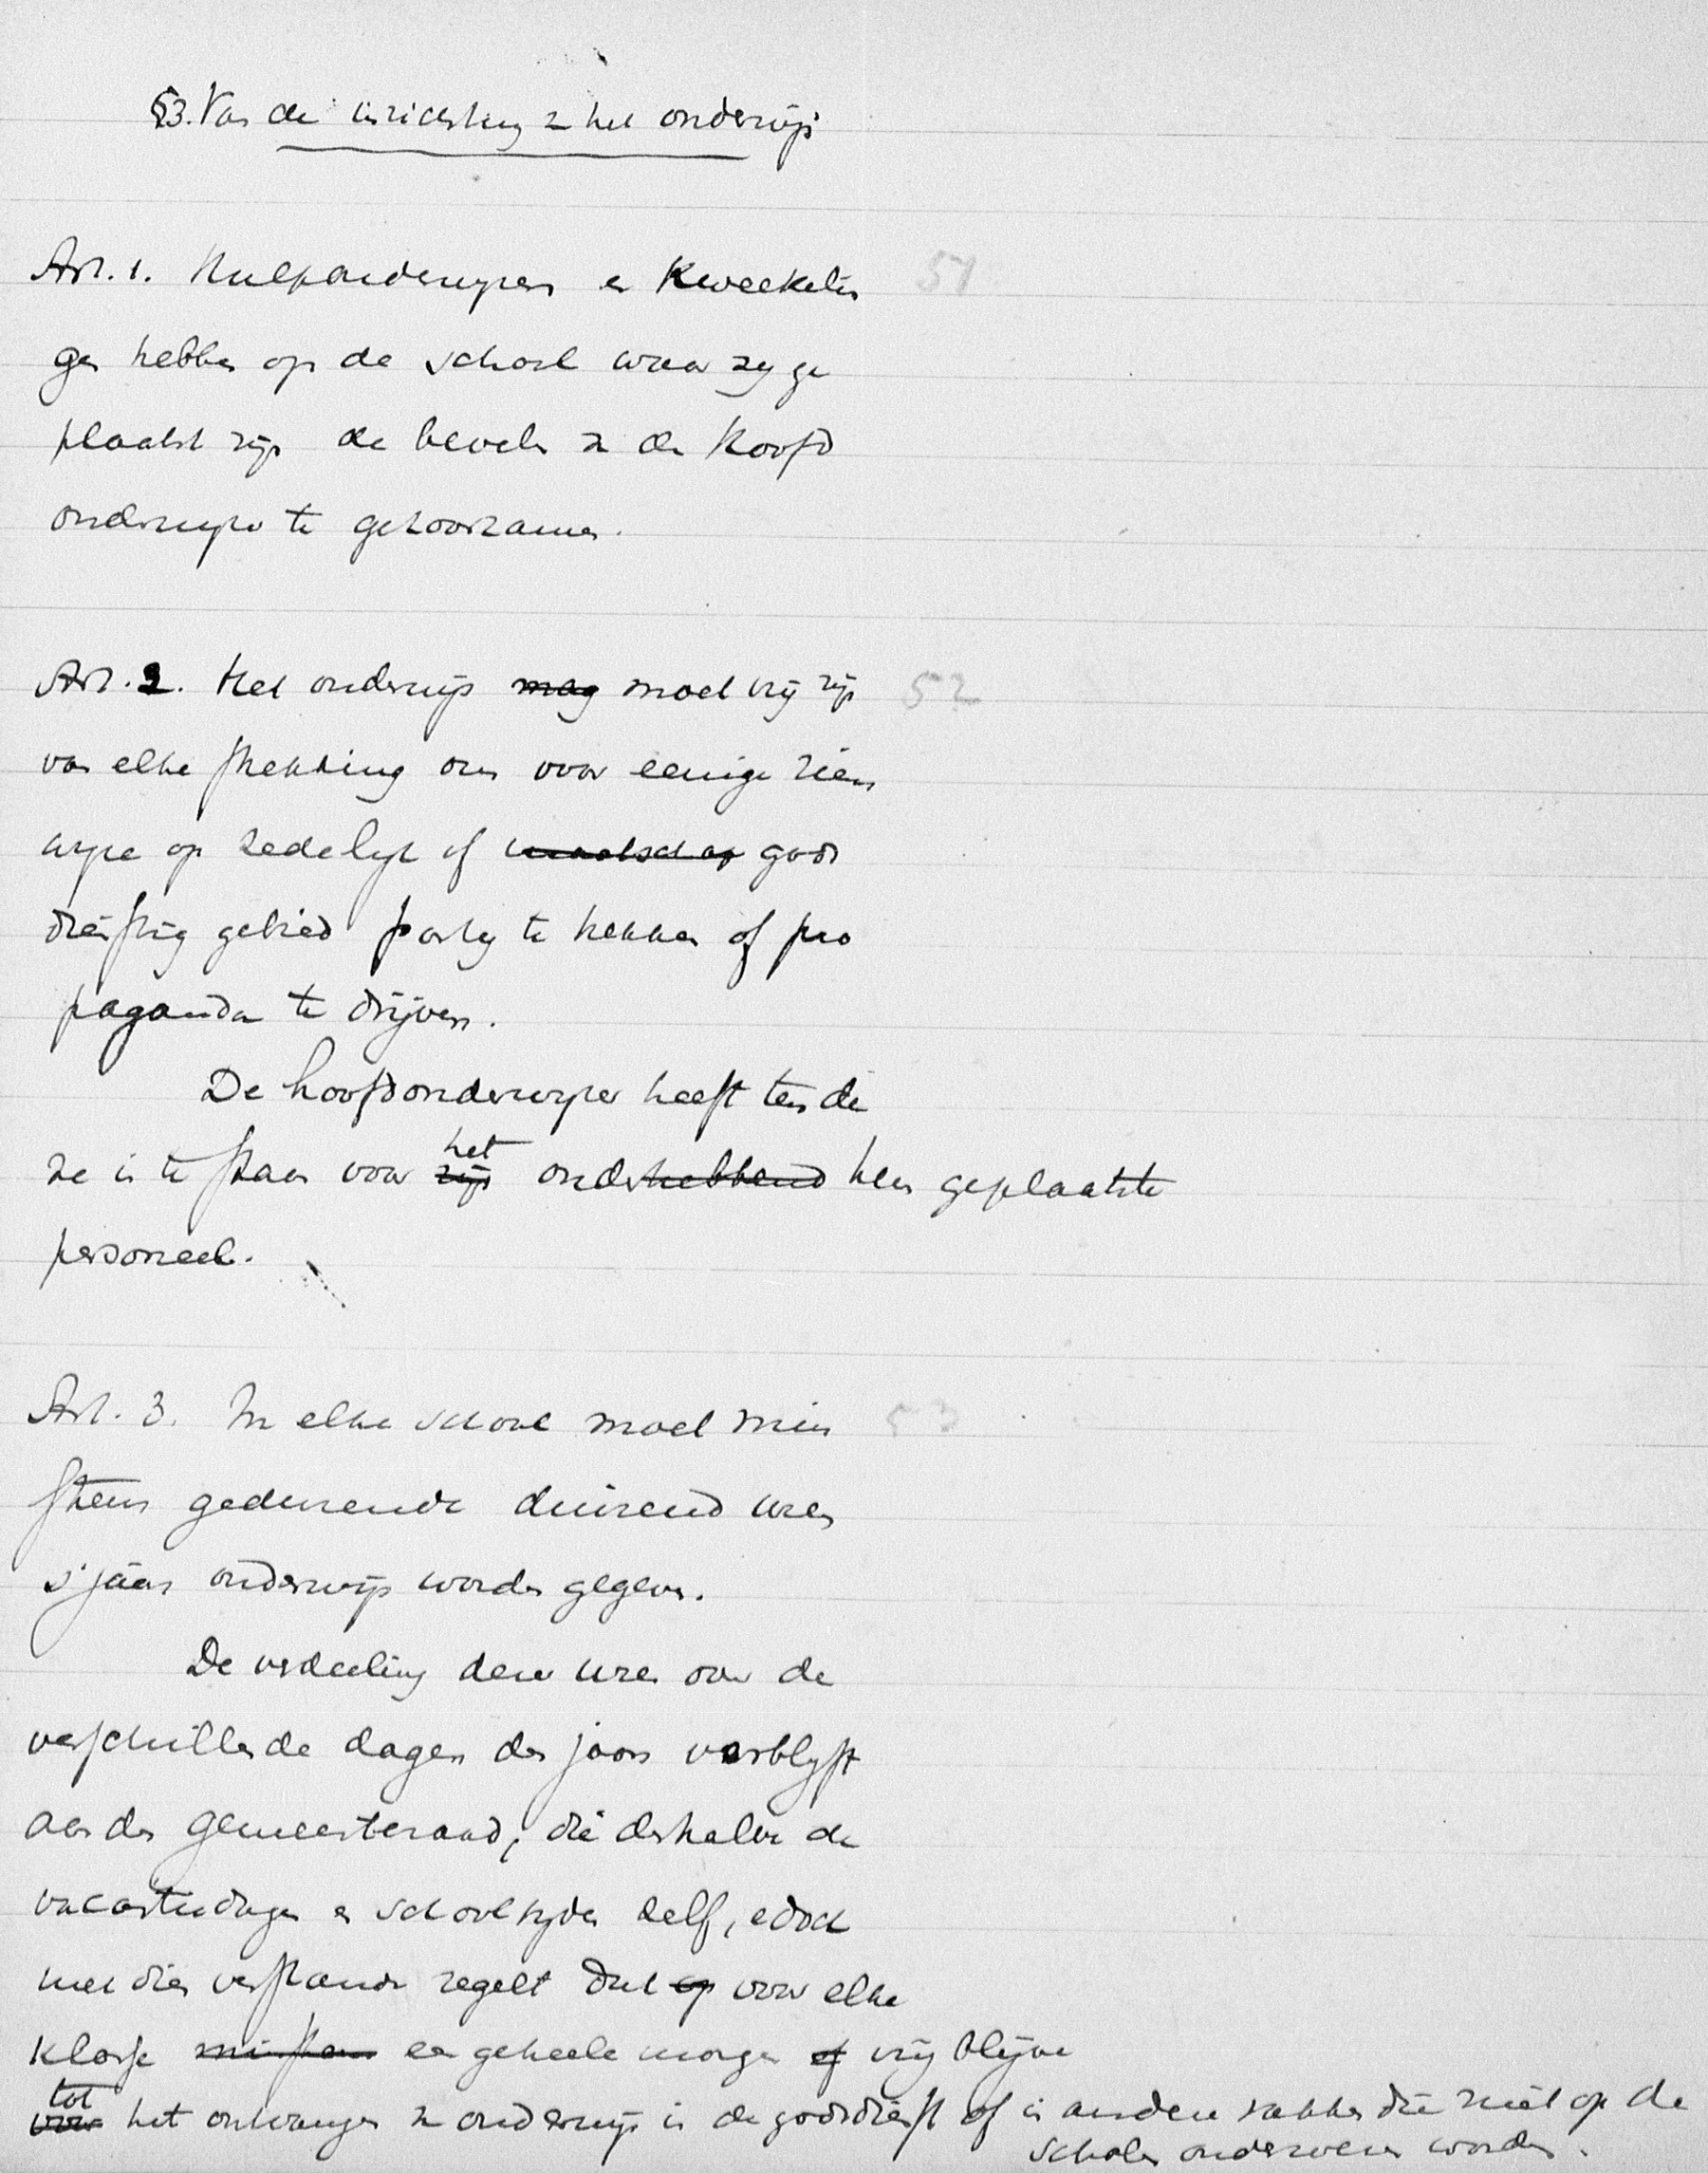 §3. Van de inrichting v het onderwijs
Art. 1. Hulponderwyzers en Kweekelin 51
gen hebben op de school waar zy ge
plaatst zijn de bevelen v den Hoofd
onderwyzer te gehoorzamen.
Art. 2. Het onderwijs mag moet vrij zijn 52
van elke strekking om voor eenige ziens
wyze op zedelyk of maatschap gods
dienstig gebied party te trekken of pro
paganda te drijven.
De hoofdonderwyzer heeft ten de
ze in te staan voor zijn het onderhebbend hem geplaatste
personeel.
Art. 3. In elke school moet min 53
stens gedurende duizend uren
s'jaars onderwijs worden gegeven.
De verdeeling dezer uren over de
verschillende dagen des jaars verblyft
aan den gemeenteraad, die derhalve de
vacantiedagen en schooltyden zelf, edoch
met dien verstande regelt dat op voor elke
klasse minstens een geheele morgen of vrij blijve
voor tot het ontvangen v onderwijs in de godsdienst of in andere vakken die niet op de
scholen onderwezen worden.